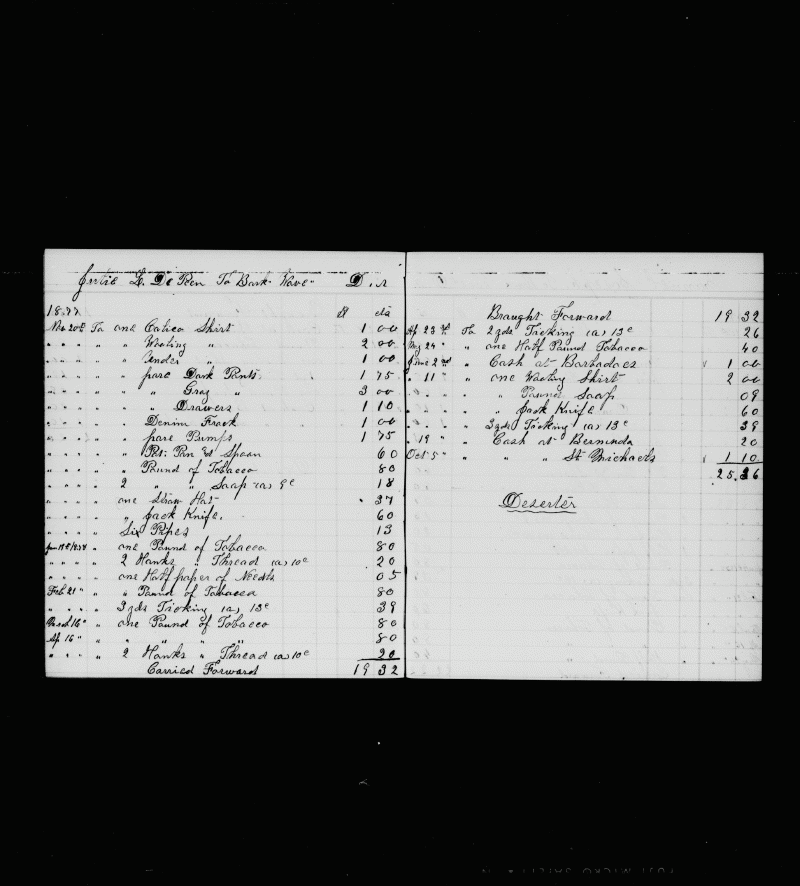 L. De Pen To Bark "Wave" Dr
1877 $ cts
Nov 20th To one Calico Shirt 1 00
" " " " Wooling " 2 00
" " " " Under " 1 00
" " " " pare Dark Pants 1 75
" " " " " Gray " 3 00
" " " " " Drawers 1 10
" " " " Denim Frock 1 00
" " " " pare Pumps 1 75
" " " " Pot. Pan & Spoon 60
" " " " Pound of Tobacco 80
" " " 2 " " Soap (a) 9c 18
" " " one Straw Hat 37
" " " " Jack Knife. 60
" " " Six Pipes 13
Jan 19th 1878 " one Pound of Tobacco 80
" " " 2 Hanks " Thread (a) 10c 20
" " " one Half paper of Needls 05
Feb 21" " " Pound of Tobacco 80
" " " 3 yds Ticking (a) 13c 39
March 16" " one Pound of Tobacco 80
Ap 16" " " " " " 80
" " " 2 Hanks " Thread (a) 10c 20
Carried Forward 19 32
Braught Forward 19 32
Ap 23rd To 2 yds Ticking (a) 13c 26
May 24" " one Half Pound Tobacco 40
June 2nd " Cash at Barbadoes 1 00
" 11" " one Wooling Shirt 2 00
" " " " Pound Soap 09
" " " " Jack Knife 60
" " " 3 yds Ticking (a) 13c 39
" 19" " Cash at Bermuda 20
Oct 5" " " " St Michaels 1 10
25.36
Deserter